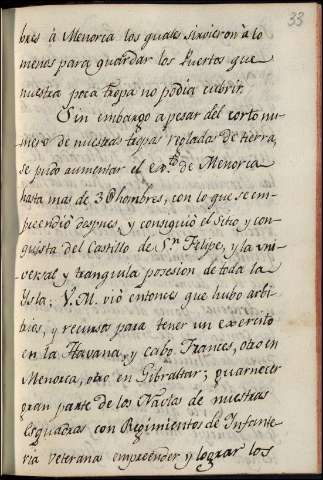 33
bres à Menorca los quales sirvieron à lo
menos para guardar los Puertos que
nuestra poca tropa no podia cubrir.
Sin embargo apesar del corto nu-
mero de nuestras tropas regladas de tierra,
se pudo aumentar el exto. de Menorca
hasta mas de 30 hombres, con lo que se em-
prendió despues, y consiguió el Sitio, y con-
quista del Castillo de Sn. Felipe, y la uni-
versal y tranquila posesion de toda la
Ysla; V. M. vió entonces que hubo arbi-
trios, y recursos para tener un exercito
en la Havana, y cabo Frances, otro en
Menorca, otro en Gibraltar; guarnecer
gran parte de los Navios de nuestras
Esquadras con Regimientos de Infante-
ria veterana emprender y lograr los